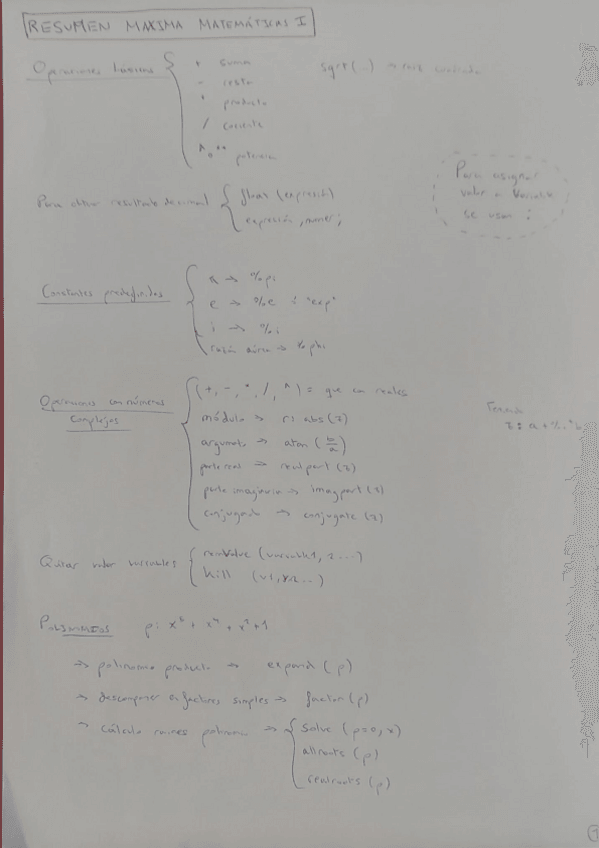 RESUMEN MAXIMA MATEMÁTICAS I
Operaciones básicas
+ suma
- resta
* producto
/ cociente
^ o ** potencia
sqrt(..) → raíz cuadrada
Para asignar
valor a variable
se usan :
Para obtener resultado decimal
float (expresión)
expresión, numer;
Constantes predefinidas
π → %pi
e → %e
i → %i
razón aúrea → %phi
Operaciones con números
complejos
(+, -, *, /, ^) = que con reales
módulo → r: abs(z)
argumento → atan (b/a)
parte real → realpart (z)
parte imaginaria → imagpart (z)
conjugado → conjugate (z)
z: a + %i*b
Quitar valor variables
remvalue (variable1, 2...)
kill (v1, v2...)
POLINOMIOS
→ polinomio producto → expand (p)
→ descomponer en factores simples → factor (p)
→ cálculo raíces polinomio →
solve (p=0, x)
allroots (p)
realroots (p)